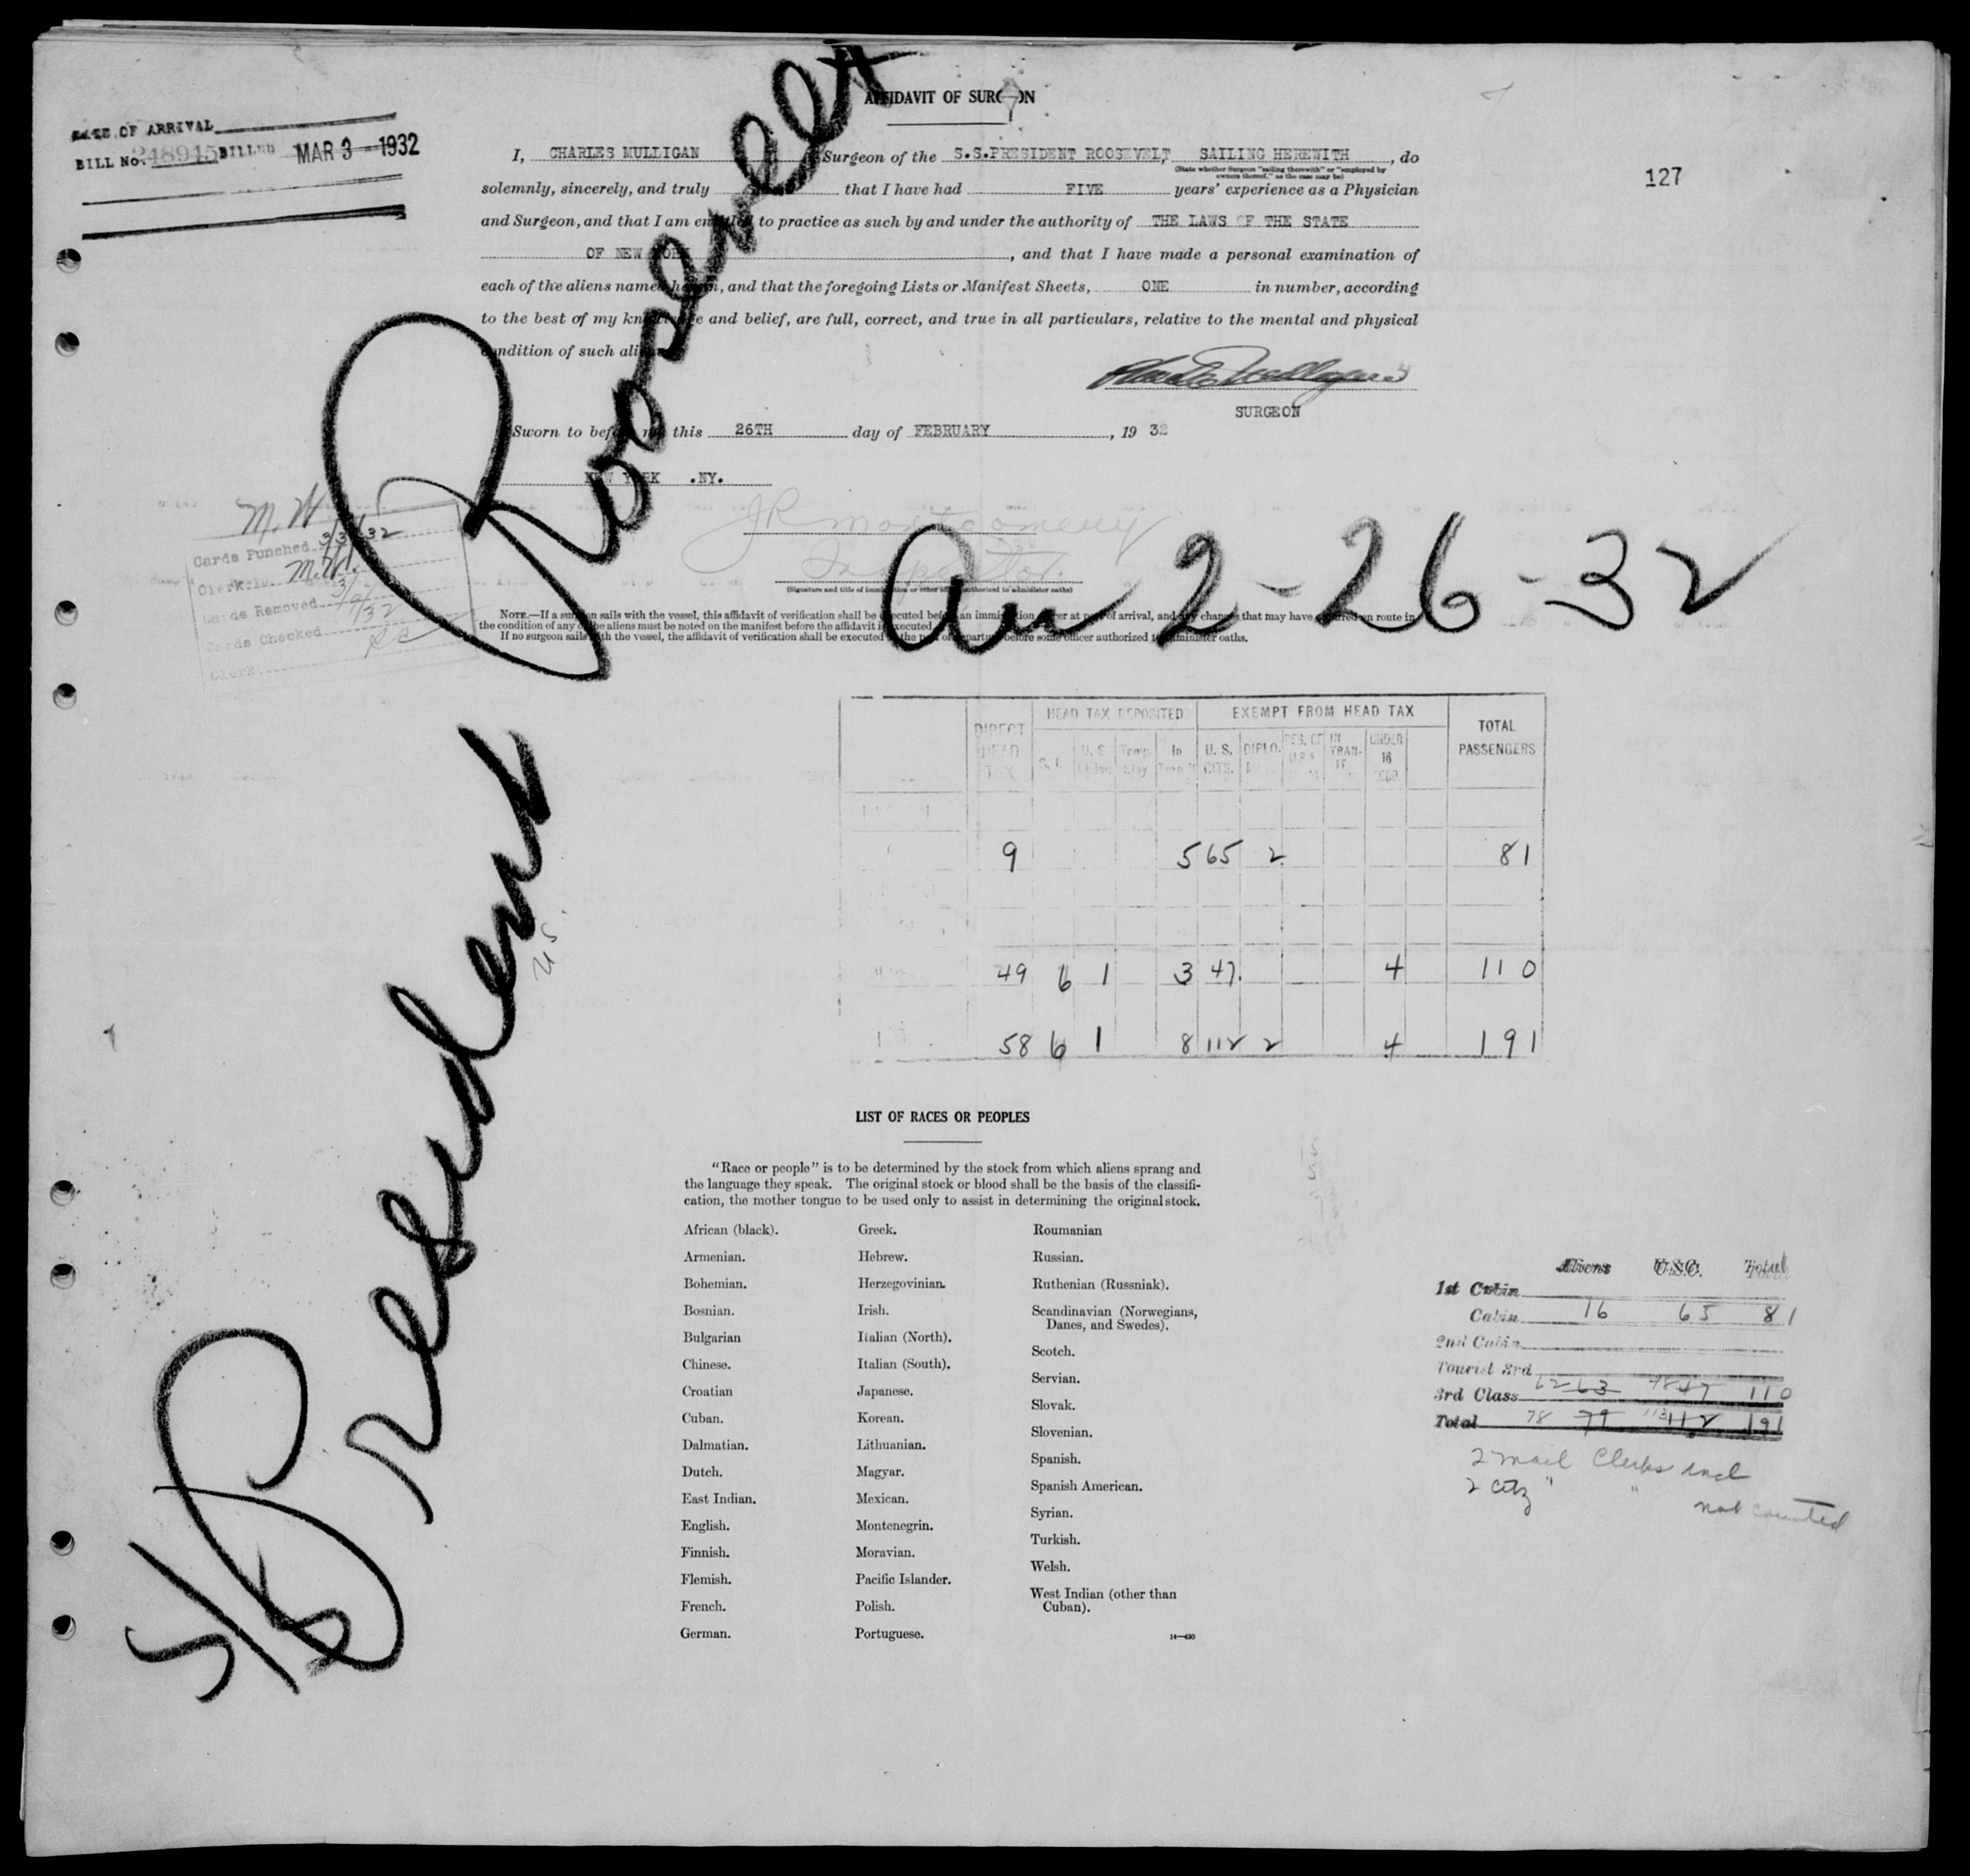 AFFIDAVIT OF SURGEON
DATE OF ARRIVAL
BILL No. 248945 BILLED MAR 3 - 1932
127
I, CHARLES MULLIGAN Surgeon of the S.S.PRESIDENT ROOSEVELT, SAILING HEREWITH, do
(State whether Surgeon "sailing therewith" or "employed by
owners thereof," as the case may be)
solemnly, sincerely, and truly that I have had FIVE years' experience as a Physician
and Surgeon, and that I am entitled to practice as such by and under the authority of THE LAWS OF THE STATE
OF NEW YORK, and that I have made a personal examination of
each of the aliens named herein, and that the foregoing Lists or Manifest Sheets, ONE in number, according
to the best of my knowledge and belief, are full, correct, and true in all particulars, relative to the mental and physical
condition of such aliens
Charles Mulligan
SURGEON
Sworn to before me this 26TH day of FEBRUARY, 19 32
NEW YORK .NY.
JR Montgomery
Inspector.
(Signature and title of immigration or other officer authorized to administer oaths)
NOTE.—If a surgeon sails with the vessel, this affidavit of verification shall be executed before an immigration officer at port of arrival, and any changes that may have occurred en route in
the condition of any of the aliens must be noted on the manifest before the affidavit is executed
If no surgeon sails with the vessel, the affidavit of verification shall be executed at the port of departure before some officer authorized to administer oaths.
S/S President Roosevelt
Arr 2-26-32
M.H
Cards Punched 3/3/32
Clerk M.H.
Cards Removed 3/9/32
Cards Checked
Clerk
U.S.
DIRECT HEAD TAX
HEAD TAX DEPOSITED
EXEMPT FROM HEAD TAX
TOTAL PASSENGERS
S. I. U. S. Temp. In U. S. CITS. DIPLO. RES. OF U.S.A. IN TRAN- IT UNDER 16
9 5 65 2 81
49 6 1 3 47. 4 110
58 6 1 8 112 2 4 191
LIST OF RACES OR PEOPLES
"Race or people" is to be determined by the stock from which aliens sprang and
the language they speak. The original stock or blood shall be the basis of the classifi-
cation, the mother tongue to be used only to assist in determining the original stock.
African (black).
Armenian.
Bohemian.
Bosnian.
Bulgarian
Chinese.
Croatian
Cuban.
Dalmatian.
Dutch.
East Indian.
English.
Finnish.
Flemish.
French.
German.
Greek.
Hebrew.
Herzegovinian.
Irish.
Italian (North).
Italian (South).
Japanese.
Korean.
Lithuanian.
Magyar.
Mexican.
Montenegrin.
Moravian.
Pacific Islander.
Polish.
Portuguese.
Roumanian
Russian.
Ruthenian (Russniak).
Scandinavian (Norwegians,
Danes, and Swedes).
Scotch.
Servian.
Slovak.
Slovenian.
Spanish.
Spanish American.
Syrian.
Turkish.
Welsh.
West Indian (other than
Cuban).
14—430
Aliens U.S.C. Total
1st Cabin
Cabin 16 65 81
2nd Cabin
Tourist 3rd
3rd Class 62 63 48 47 110
Total 78 79 113 112 191
2 mail Clerks incl
2 citz " " not counted